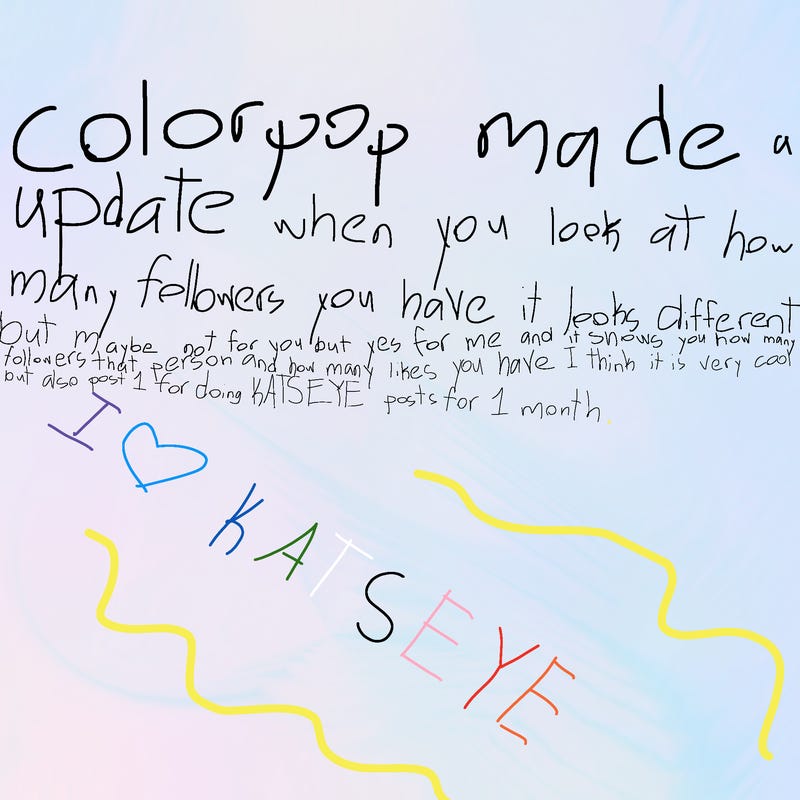 colorpop made a
update when you look at how
many followers you have it looks different
but maybe not for you but yes for me and it shows you how many
followers that person and how many likes you have I think it is very cool
but also post 1 for doing KATSEYE posts for 1 month.
I ♡ KATSEYE